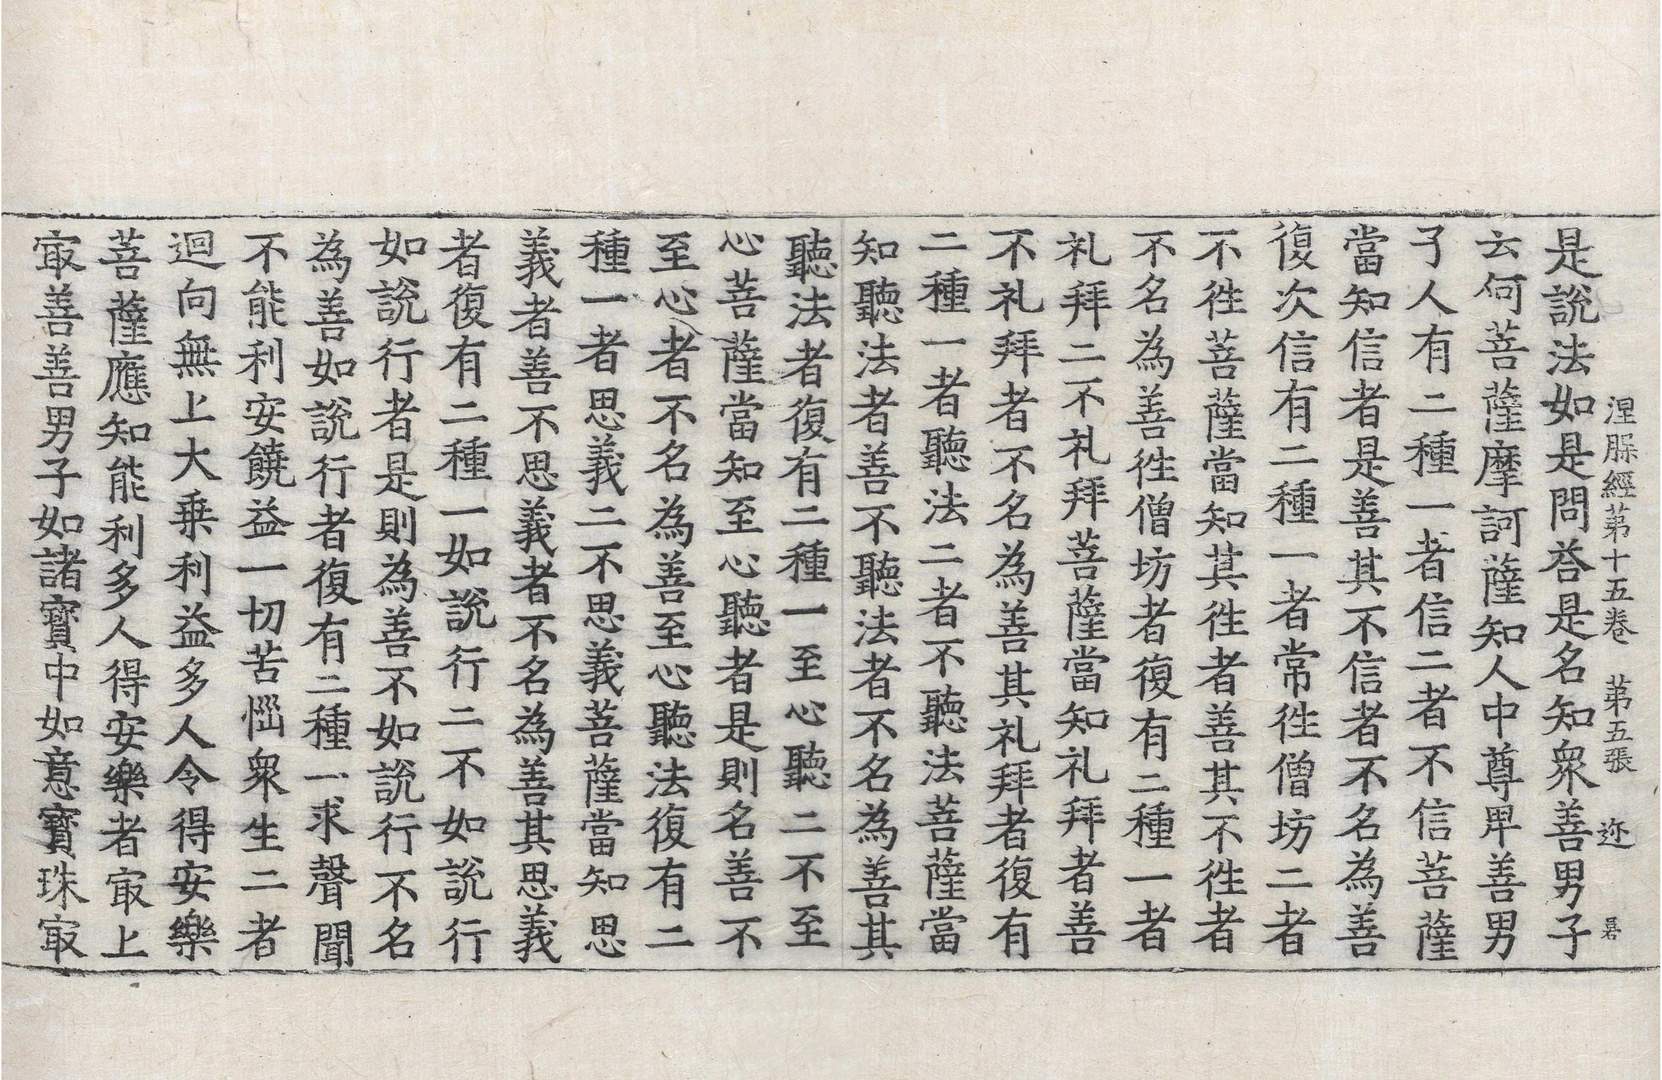 涅脤經苐十五卷 苐五張 迩
是說法如是問荅是名知衆善男子
云何菩薩摩訶薩知人中尊卑善男
子人有二種一者信二者不信菩薩
當知信者是善其不信者不名為善
復次信有二種一者常徃僧坊二者
不徃菩薩當知其徃者善其不徃者
不名為善徃僧坊者復有二種一者
礼拜二不礼拜菩薩當知礼拜者善
不礼拜者不名為善其礼拜者復有
二種一者聽法二者不聽法菩薩當
知聽法者善不聽法者不名為善其
聽法者復有二種一至心聽二不至
心菩薩當知至心聽者是則名善不
至心者不名為善至心聽法復有二
種一者思義二不思義菩薩當知思
義者善不思義者不名為善其思義
者復有二種一如說行二不如說行
如說行者是則為善不如說行不名
為善如說行者復有二種一求聲聞
不能利安饒益一切苦惱衆生二者
迴向無上大乗利益多人令得安樂
菩薩應知能利多人得安樂者㝡上
㝡善善男子如諸寶中如意寶珠㝡